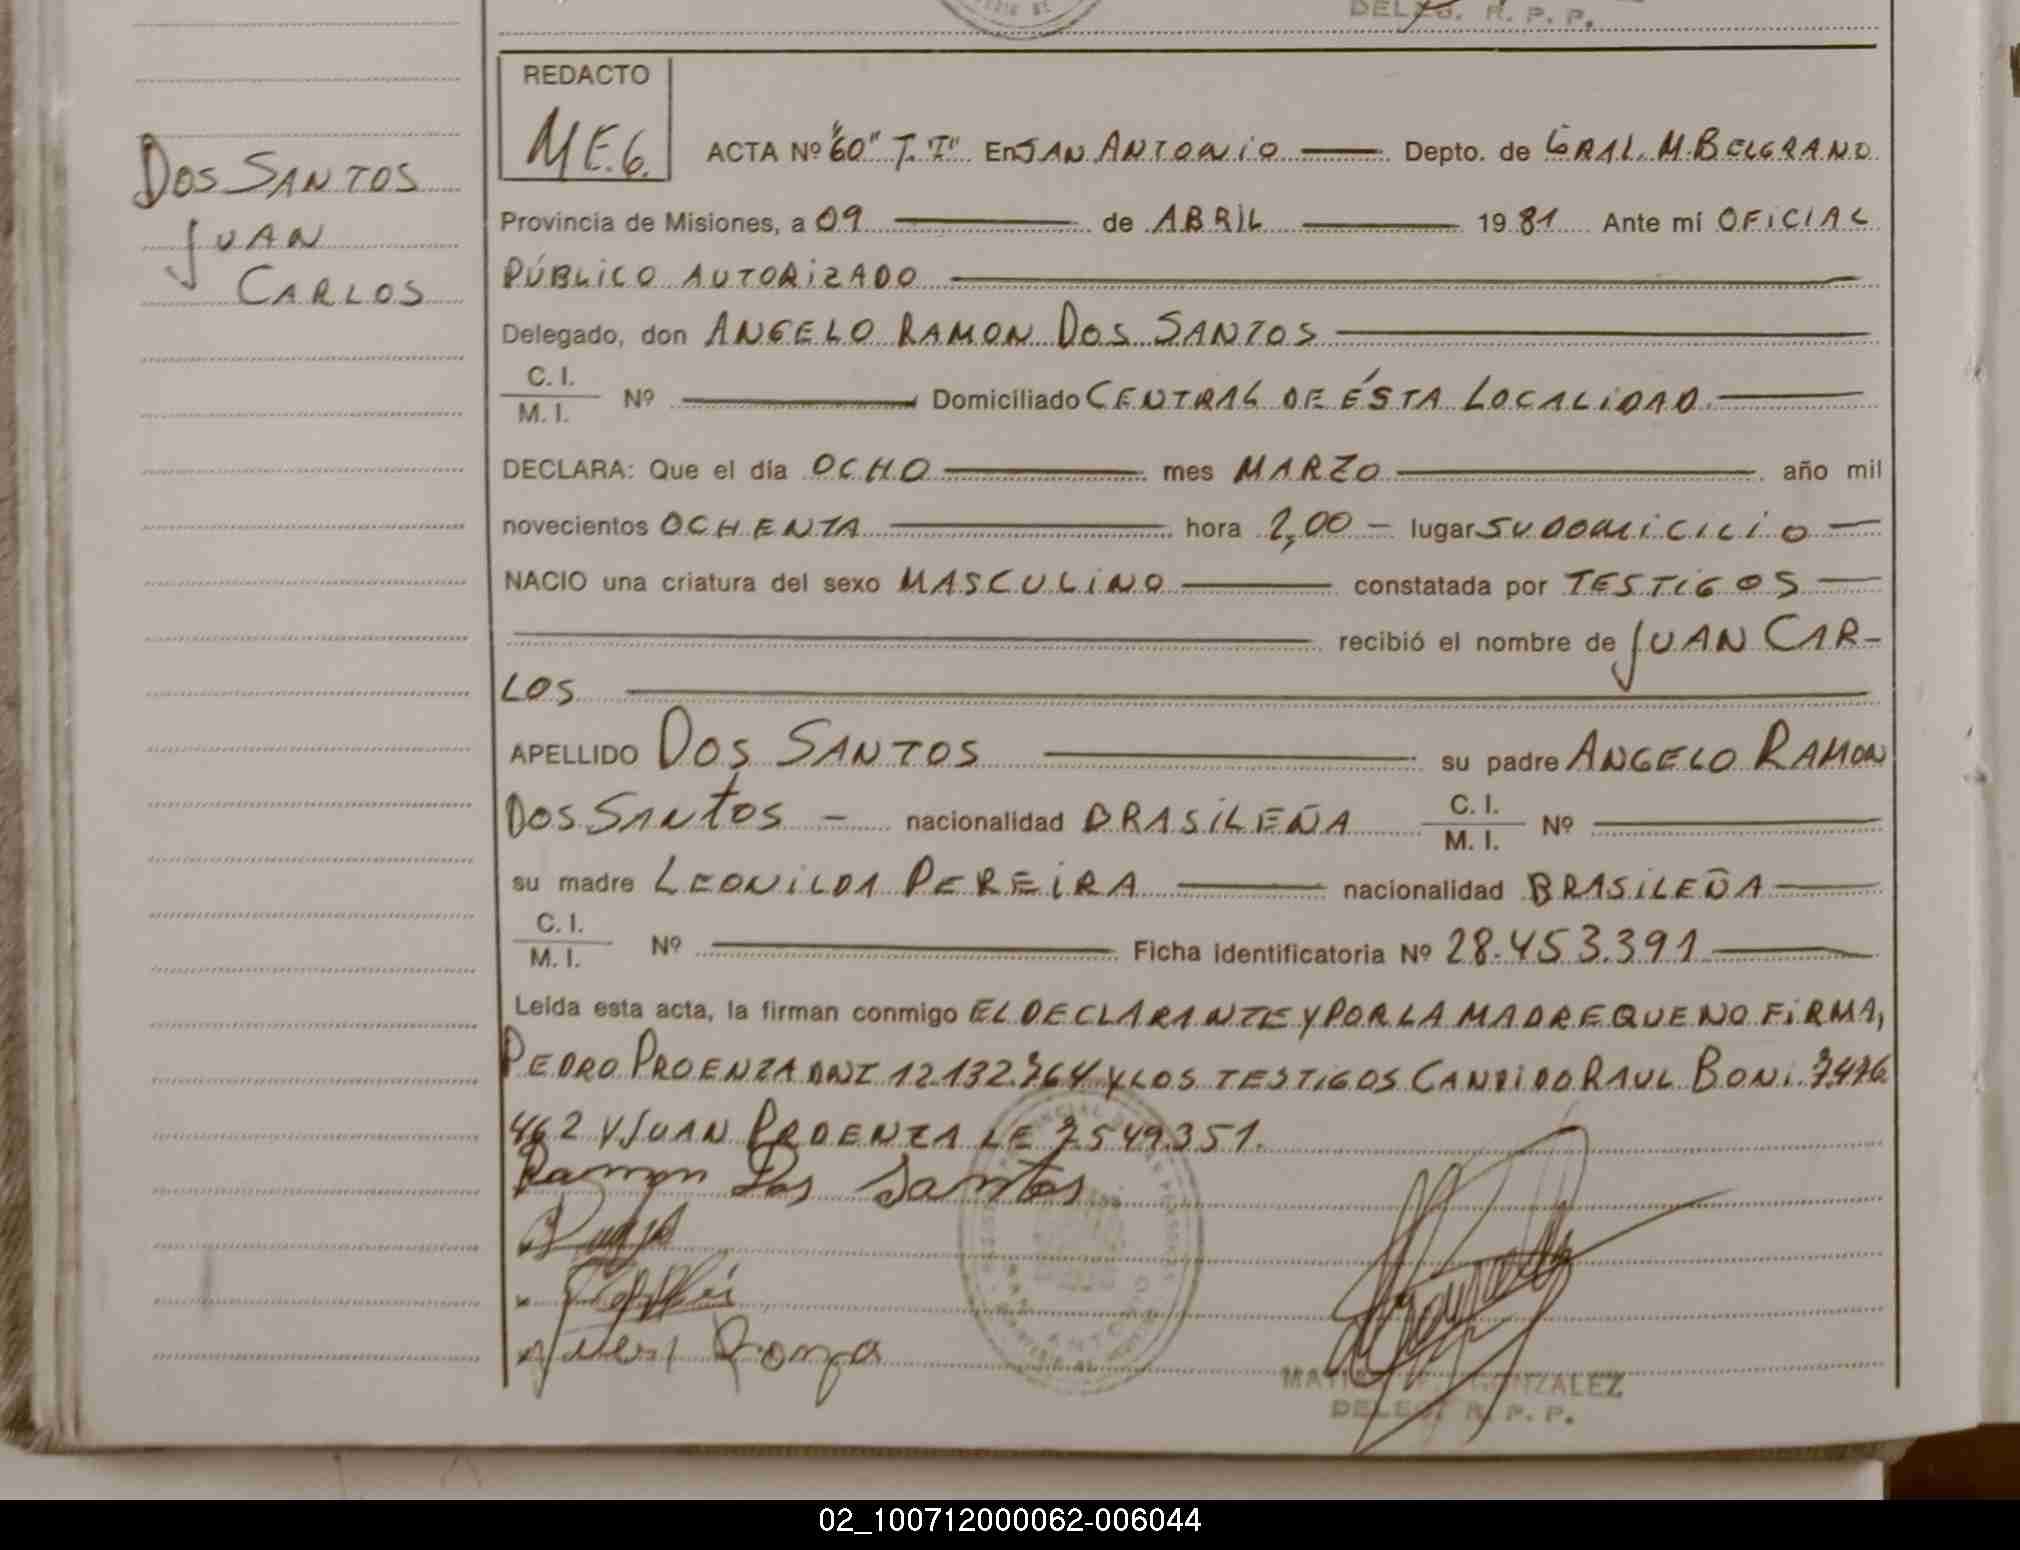 DELEG. R. P. P.
REDACTO
M.E.G.
DOS SANTOS
JUAN
CARLOS
ACTA Nº "60" T."I" En SAN ANTONIO Depto. de GRAL. M. BELGRANO
Provincia de Misiones, a 09 de ABRIL 1981 Ante mí OFICIAL
PÚBLICO AUTORIZADO
Delegado, don ANGELO RAMON DOS SANTOS
C. I.
M. I. Nº Domiciliado CENTRAL DE ÉSTA LOCALIDAD.
DECLARA: Que el día OCHO mes MARZO año mil
novecientos OCHENTA hora 2,00 – lugar SU DOMICILIO
NACIO una criatura del sexo MASCULINO constatada por TESTIGOS
recibió el nombre de JUAN CAR-
LOS
APELLIDO DOS SANTOS su padre ANGELO RAMON
DOS SANTOS – nacionalidad BRASILEÑA C. I. M. I. Nº
su madre LEONILDA PEREIRA nacionalidad BRASILEÑA
C. I.
M. I. Nº Ficha identificatoria Nº 28.453.391
Leída esta acta, la firman conmigo EL DECLARANTE Y POR LA MADRE QUE NO FIRMA,
PEDRO PROENZA DNI 12.132.764 Y LOS TESTIGOS CANDIDO RAUL BONI. 7.476.
462 Y JUAN PROENZA LE 7.549.351.
Ramon Dos Santos
GONZALEZ
DELEG. R. P. P.
02_100712000062-006044